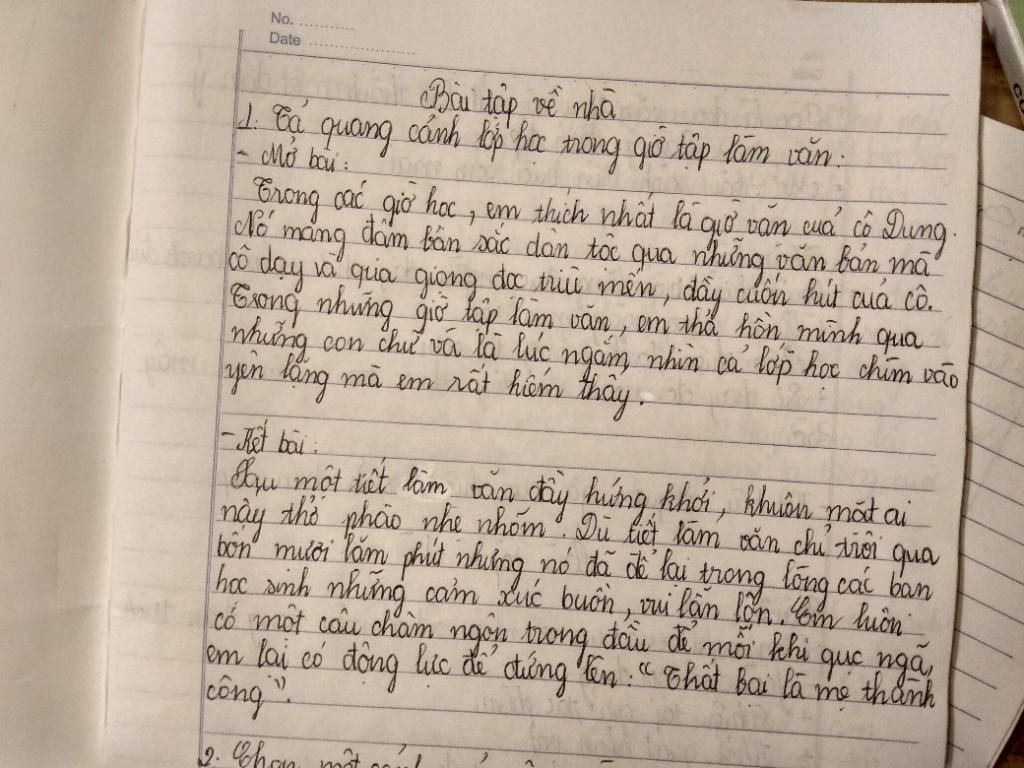 No. ............
Date ........................
Bài tập về nhà
1. Tả quang cảnh lớp học trong giờ tập làm văn:
- Mở bài:
Trong các giờ học, em thích nhất là giờ văn của cô Dung.
Nó mang đậm bản sắc dân tộc qua những văn bản mà
cô dạy và qua giọng đọc trìu mến, đầy cuốn hút của cô.
Trong những giờ tập làm văn, em thả hồn mình qua
những con chữ và là lúc ngắm nhìn cả lớp học chìm vào
yên lặng mà em rất hiếm thấy.
- Kết bài:
Sau một tiết làm văn đầy hứng khởi, khuôn mặt ai
nấy thở phào nhẹ nhõm. Dù tiết làm văn chỉ trôi qua
bốn mươi lăm phút nhưng nó đã để lại trong lòng các bạn
học sinh những cảm xúc buồn, vui lẫn lộn. Em luôn
có một câu châm ngôn trong đầu để mỗi khi gục ngã,
em lại có động lực để đứng lên: "Thất bại là mẹ thành
công".
2. Chọn một cảnh